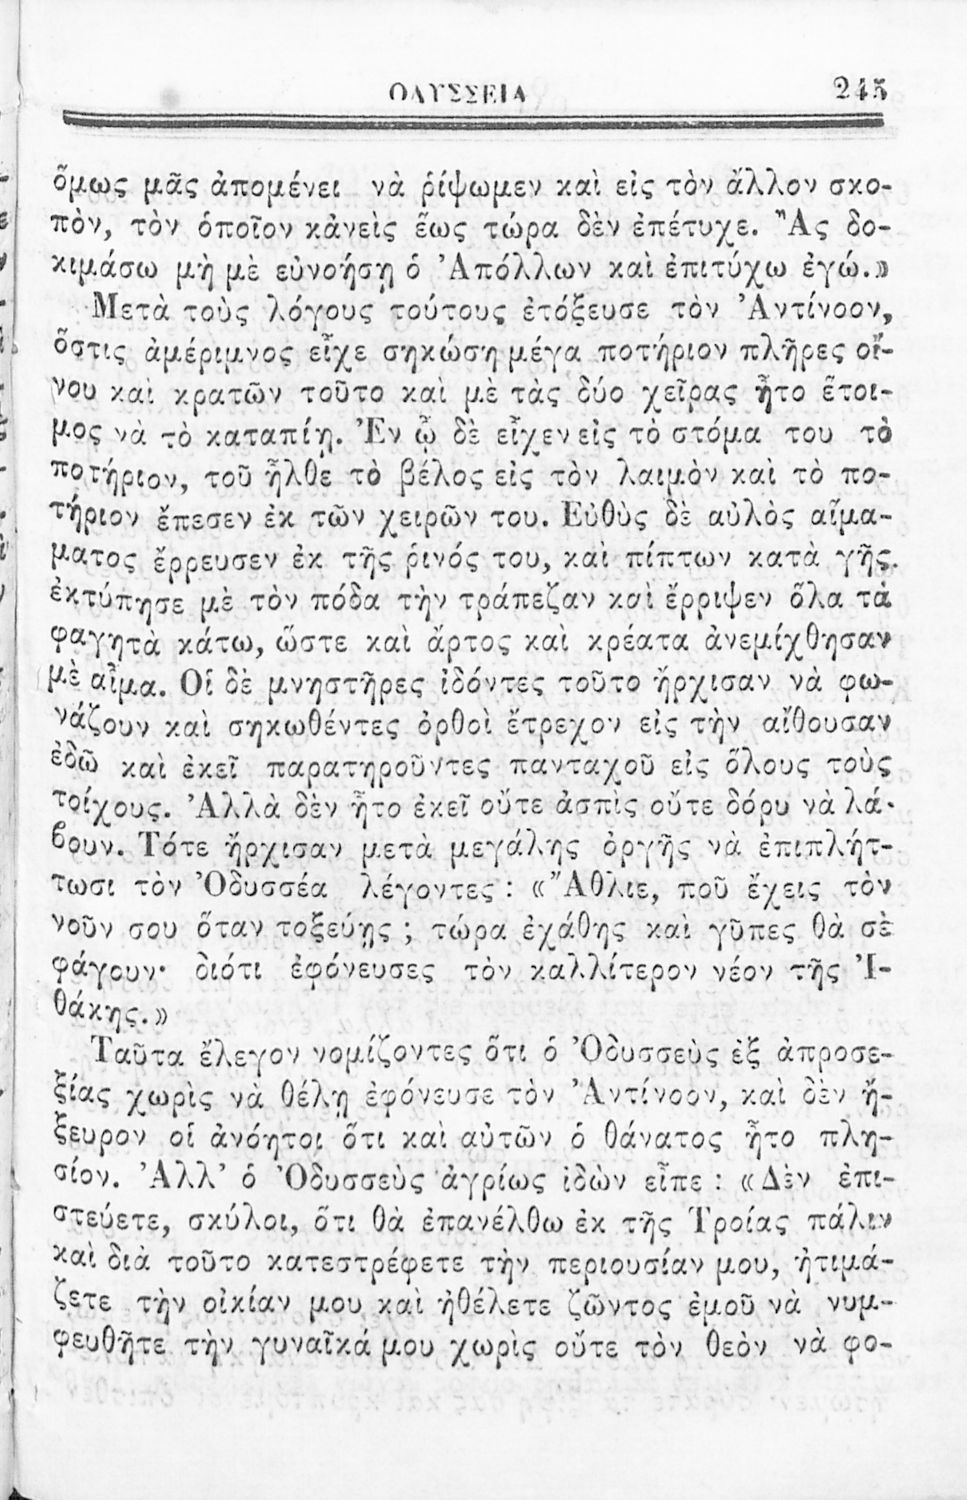 ΟΔΥΣΣΕΙΑ 245
ὅμως μᾶς ἀπομένει νὰ ῥίψωμεν καὶ εἰς τὸν ἄλλον σκο-
πὸν, τὸν ὁποῖον κἀνεὶς ἕως τώρα δὲν ἐπέτυχε. Ἂς δο-
κιμάσω μὴ μὲ εὐνοήσῃ ὁ Ἀπόλλων καὶ ἐπιτύχω ἐγώ.»
Μετὰ τοὺς λόγους τούτους ἐτόξευσε τὸν Ἀντίνοον,
ὅστις ἀμέριμνος εἶχε σηκώσῃ μέγα ποτήριον πλῆρες οἴ-
νου καὶ κρατῶν τοῦτο καὶ μὲ τὰς δύο χεῖρας ἦτο ἕτοι-
μος νὰ τὸ καταπίῃ. Ἐν ᾧ δὲ εἶχεν εἰς τὸ στόμα του τὸ
ποτήριον, τοῦ ἦλθε τὸ βέλος εἰς τὸν λαιμὸν καὶ τὸ πο-
τήριον ἔπεσεν ἐκ τῶν χειρῶν του. Εὐθὺς δὲ αὐλὸς αἷμα-
ματος ἔρρευσεν ἐκ τῆς ῥινός του, καὶ πίπτων κατὰ γῆς
ἐκτύπησε μὲ τὸν πόδα τὴν τράπεζαν καὶ ἔρριψεν ὅλα τὰ
φαγητὰ κάτω, ὥστε καὶ ἄρτος καὶ κρέατα ἀνεμίχθησαν
μὲ αἷμα. Οἱ δὲ μνηστῆρες ἰδόντες τοῦτο ἤρχισαν νὰ φω-
νάζουν καὶ σηκωθέντες ὀρθοὶ ἔτρεχον εἰς τὴν αἴθουσαν
ἐδῶ καὶ ἐκεῖ παρατηροῦντες πανταχοῦ εἰς ὅλους τοὺς
τοίχους. Ἀλλὰ δὲν ἦτο ἐκεῖ οὔτε ἀσπὶς οὔτε δόρυ νὰ λά-
βουν. Τότε ἤρχισαν μετὰ μεγάλης ὀργῆς νὰ ἐπιπλήτ-
τωσι τὸν Ὀδυσσέα λέγοντες : «Ἄθλιε, ποῦ ἔχεις τὸν
νοῦν σου ὅταν τοξεύῃς ; τώρα ἐχάθης καὶ γῦπες θὰ σὲ
φάγουν· διότι ἐφόνευσες τὸν καλλίτερον νέον τῆς Ἰ-
θάκης.»
Ταῦτα ἔλεγον νομίζοντες ὅτι ὁ Ὀδυσσεὺς ἐξ ἀπροσε-
ξίας χωρὶς νὰ θέλῃ ἐφόνευσε τὸν Ἀντίνοον, καὶ δὲν ἤ-
ξευρον οἱ ἀνόητοι ὅτι καὶ αὐτῶν ὁ θάνατος ἦτο πλη-
σίον. Ἀλλ' ὁ Ὀδυσσεὺς ἀγρίως ἰδὼν εἶπε : «Δὲν ἐπι-
στεύετε, σκύλοι, ὅτι θὰ ἐπανέλθω ἐκ τῆς Τροίας πάλιν
καὶ διὰ τοῦτο κατεστρέφετε τὴν περιουσίαν μου, ἠτιμά-
ζετε τὴν οἰκίαν μου καὶ ἠθέλετε ζῶντος ἐμοῦ νὰ νυμ-
φευθῆτε τὴν γυναῖκά μου χωρὶς οὔτε τὸν θεὸν νὰ φο-